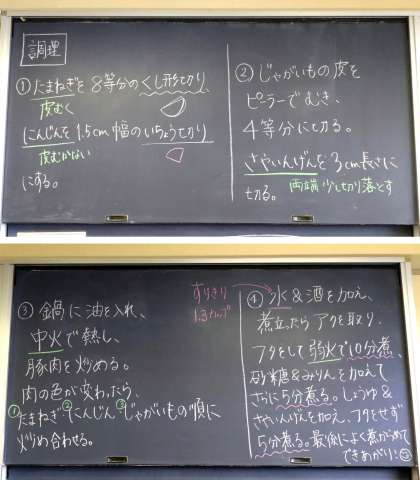 調理
①たまねぎを8等分のくし形切り、
皮むく
にんじんを1.5cm幅のいちょう切り
皮むかない
にする。
②じゃがいもの皮を
ピーラーでむき、
4等分に切る。
さやいんげんを3cm長さに
切る。 両端少し切り落とす
③鍋に油を入れ、
中火で熱し、
豚肉を炒める。
肉の色が変わったら、
①たまねぎ②にんじん③じゃがいもの順に
炒め合わせる。
すりきり
1.3カップ
④水&酒を加え、
煮立ったらアクを取り、
フタをして弱火で10分煮、
砂糖&みりんを加えて
さらに5分煮る。しょうゆ&
さやいんげんを加え、フタをせず
5分煮る。最後によく煮からめて
できあがり!